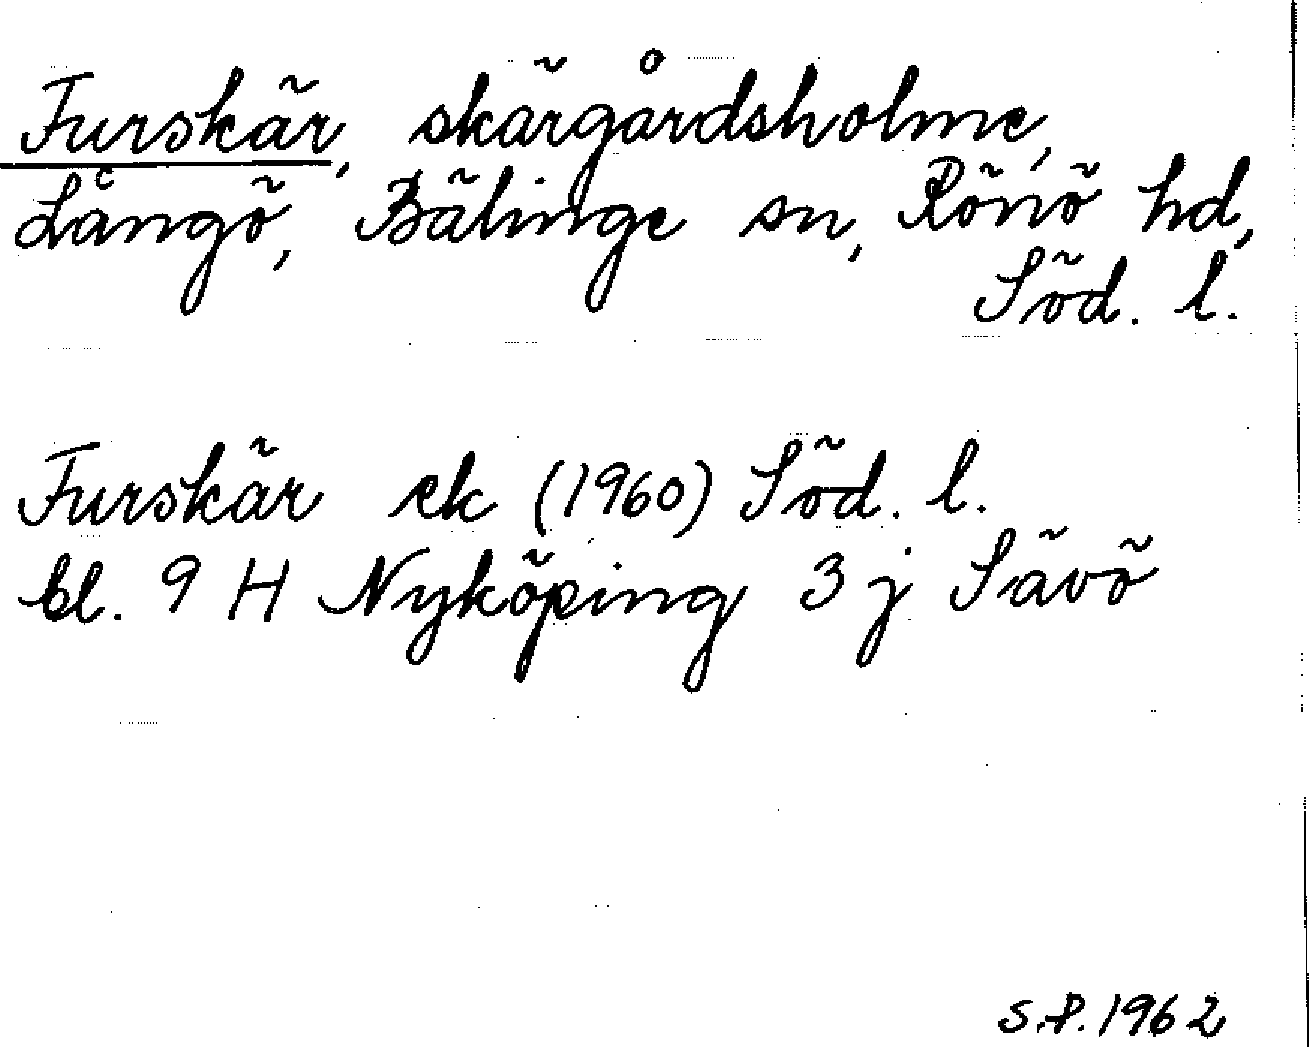 Furskär, skärgårdsholme,
Långö, Bälinge sn, Rönö hd,
Söd. l.
Furskär ek (1960) Söd. l.
bl. 9 H Nyköping 3 j Sävö
S.P. 1962